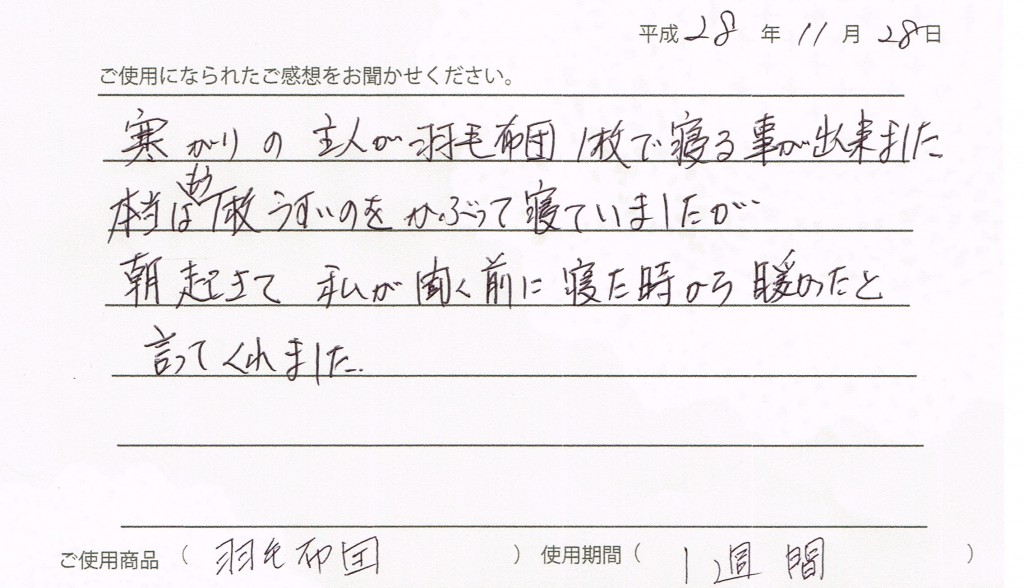 平成28年11月28日
ご使用になられたご感想をお聞かせください。
寒がりの主人が羽毛布団1枚で寝る事が出来ました
本当はもう1枚うすいのをかぶって寝ていましたが…
朝起きて 私が聞く前に寝た時から暖かったと
言ってくれました.
ご使用商品(羽毛布団) 使用期間(1週間)